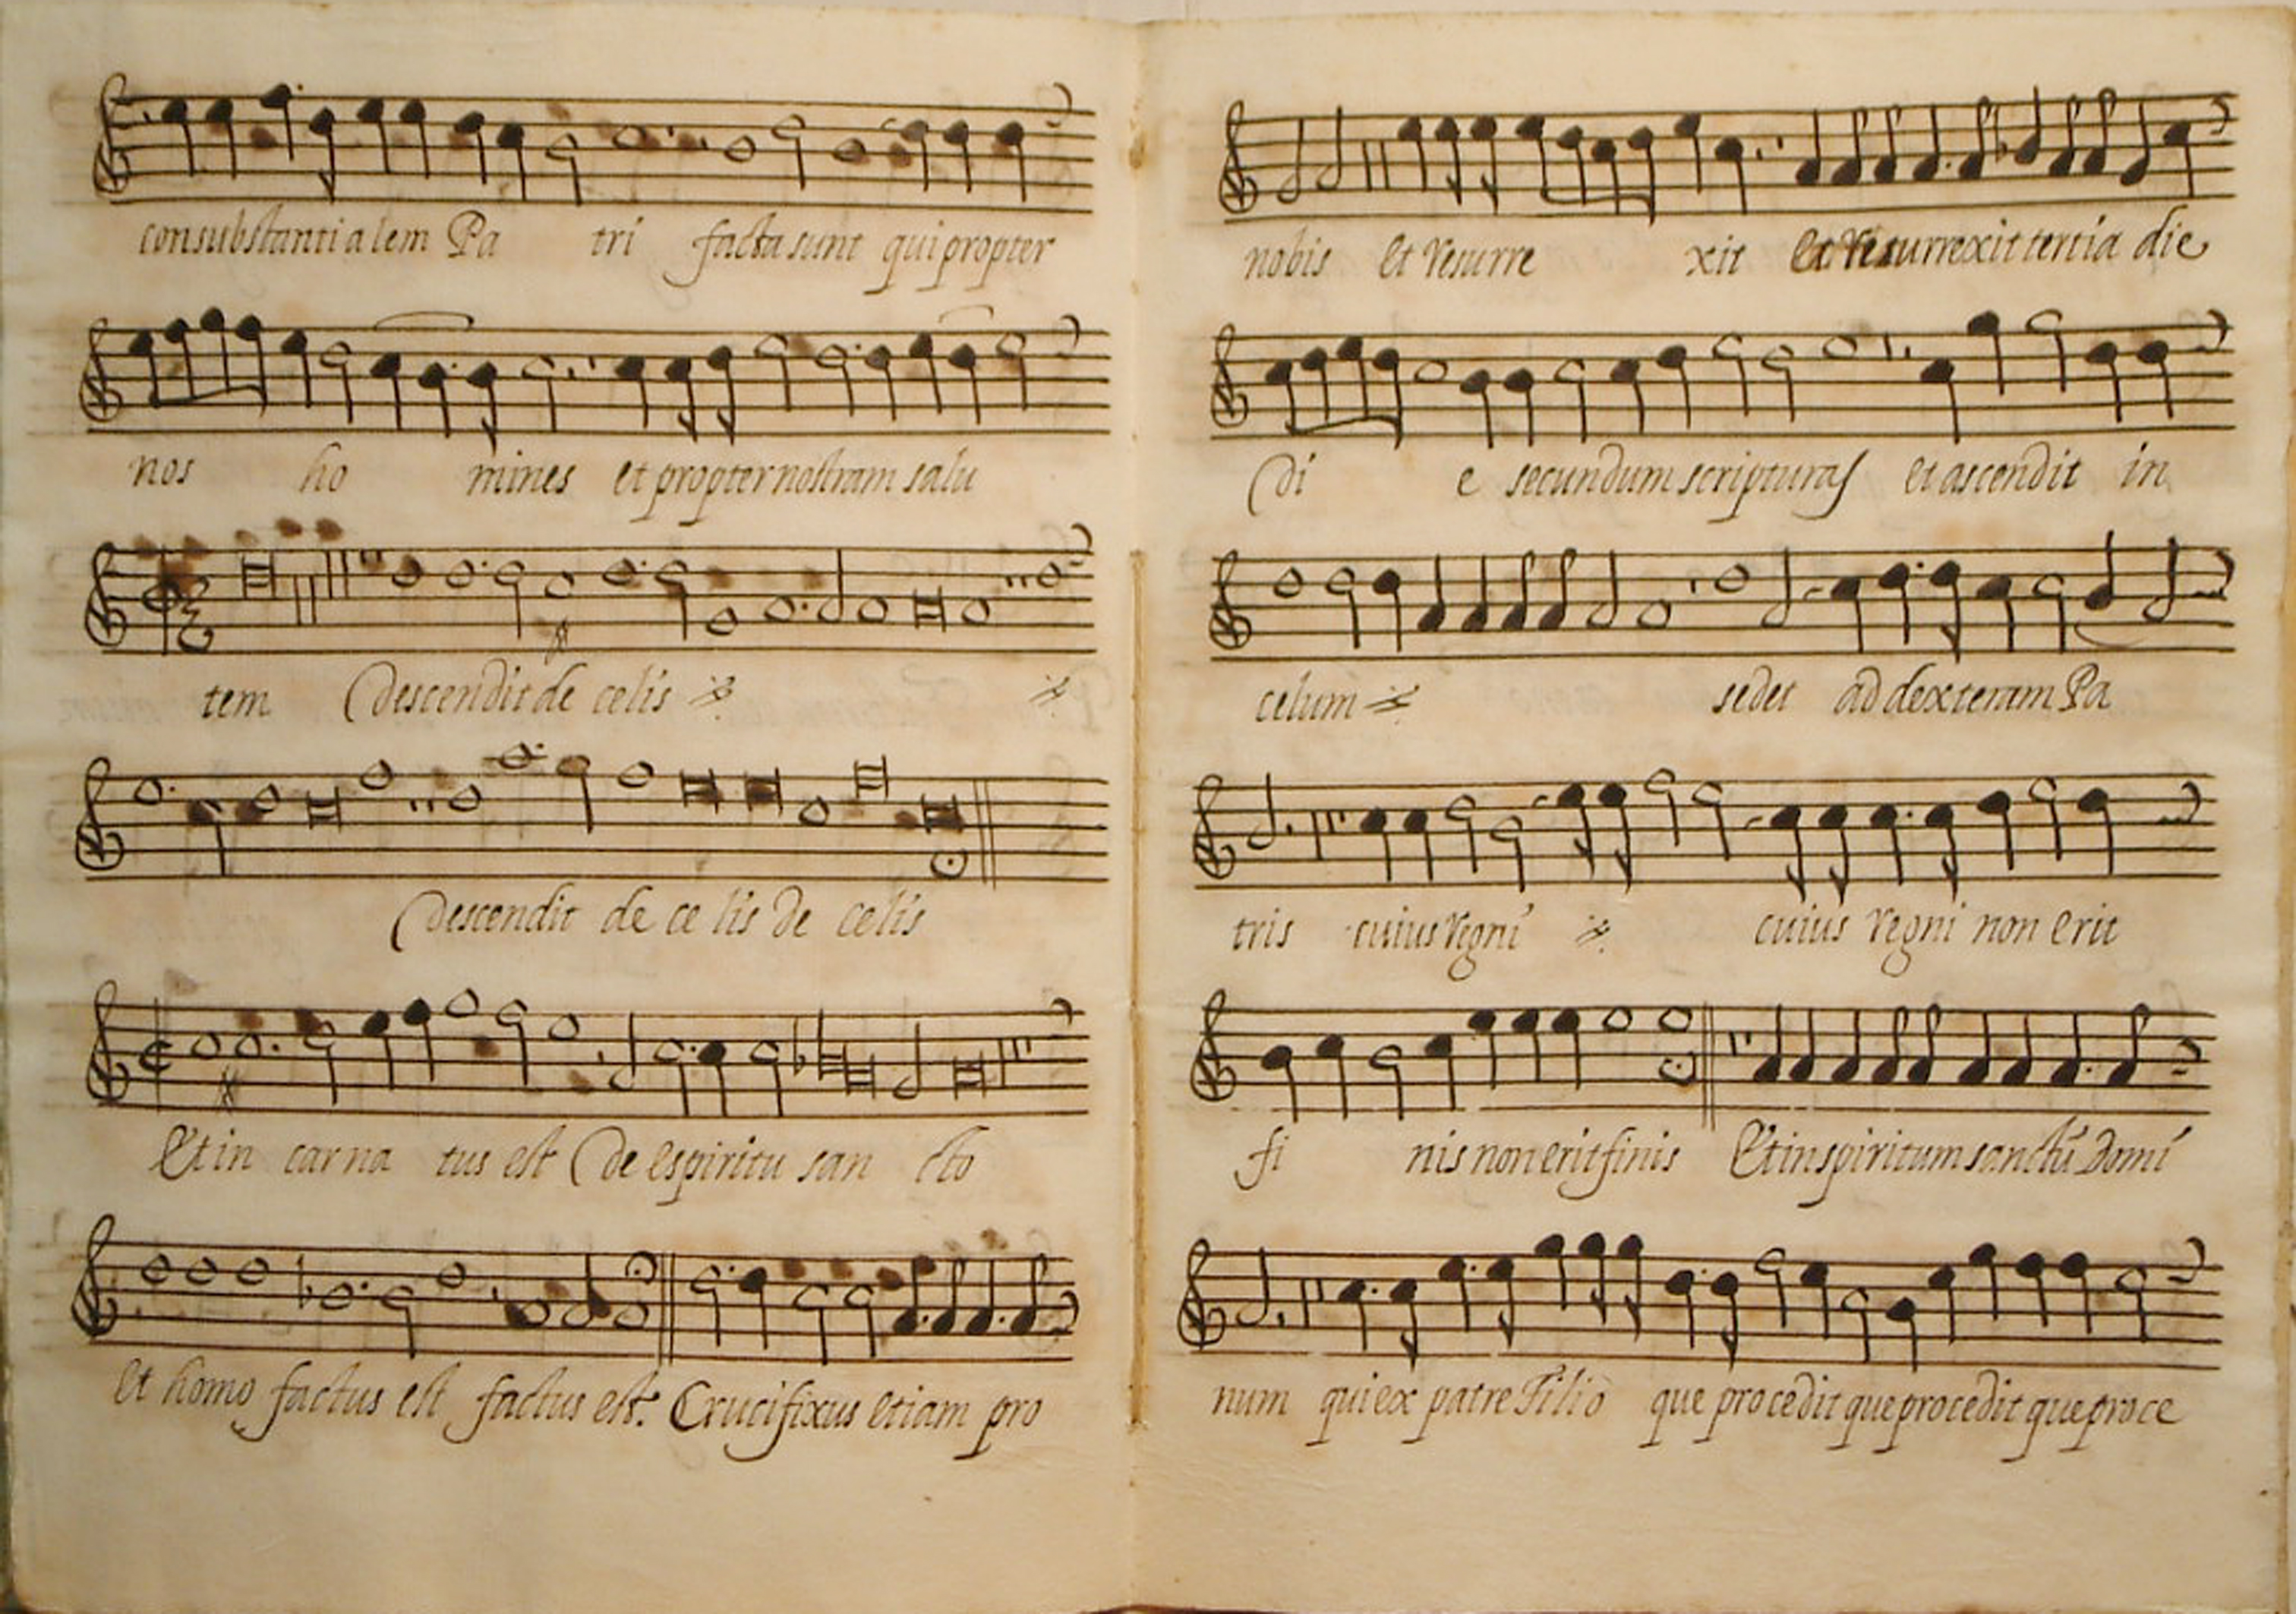 consubstantialem Pa tri facta sunt qui propter
nos ho mines et propter nostram salu
tem Descendit de celis
Descendit de ce lis de celis
Et in carna tus est De espiritu san cto
et homo factus est factus est. Crucifixus etiam pro
nobis et resurre xit et resurrexit tertia die
Di e secundum scripturas et ascendit in
celum sedet ad dexteram Pa
tris cuius regni cuius regni non erit
fi nis non erit finis Et in spiritum sanctū Domi
num qui ex patre Filio que procedit que procedit que proce